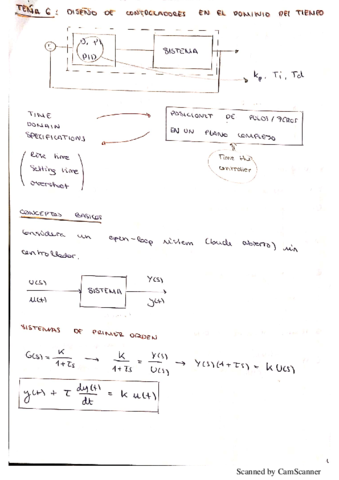 TEMA 6: DISEÑO DE CONTROLADORES EN EL DOMINIO DEL TIEMPO
PID
SISTEMA
kp, Ti, Td
TIME
DOMAIN
SPECIFICATIONS
EN UN PLANO COMPLEJO
Rise time
Settling time
overshoot
Time
controller
CONCEPTOS BASICOS
considera un open-loop sistem (bucle abierto) sin
controlador.
U(s)
u(t)
SISTEMA
Y(s)
y(t)
SISTEMAS DE PRIMER ORDEN
G(s) = K/(1+τs) → K/(1+τs) = Y(s)/U(s) → Y(s)(1+τs) = K U(s)
y(t) + τ dy(t)/dt = k u(t)
Scanned by CamScanner